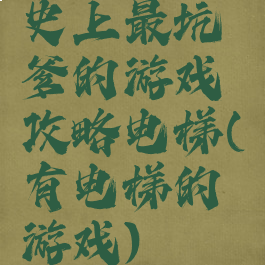 史上最坑
爹的游戏
攻略电梯(
有电梯的
游戏)